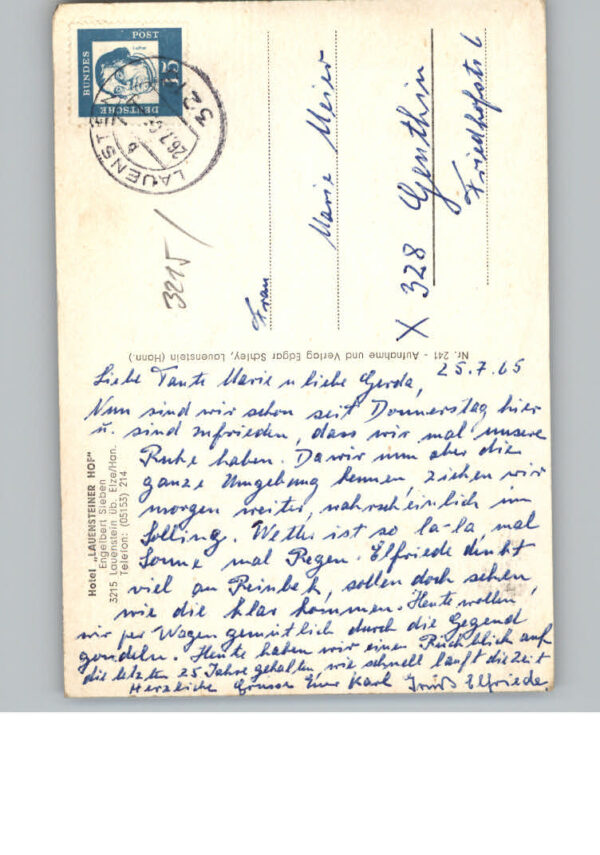 DEUTSCHE
BUNDES
POST
15
LAUENSTEIN
3215
Frau
Marie Meier
X 328 Genthin
Friedhofstr 6
3215/
Nr. 241 - Aufnahme und Verlag Edgar Schley, Lauenstein (Hann.)
Hotel „LAUENSTEINER HOF"
Engelbert Sieben
3215 Lauenstein üb. Elze/Han.
Telefon: (05153) 214
Liebe Tante Marie u liebe Gerda, 25.7.65
Nun sind wir schon seit Donnerstag hier
u. sind zufrieden, dass wir mal unsere
Ruhe haben. Da wir nun aber die
ganze Umgebung kennen, ziehen wir
morgen weiter, wahrscheinlich im
Solling. Wetter ist so la-la, mal
Sonne mal Regen. Elfriede denkt
viel an Reinbek, sollen doch sehen,
wie die klar kommen. Heute wollen
wir per Wagen gemütlich durch die Gegend
gondeln. Heute haben wir einen Rückblick auf
die letzten 25 Jahre gehalten, wie schnell läuft die Zeit
Herzliche Grüsse Euer Karl Gruß Elfriede